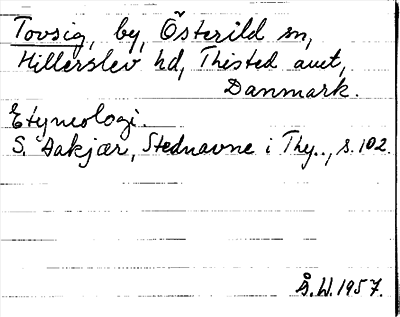 Tovsig, by, Österild sn,
Hillerslev hd, Thisted amt,
Danmark.
Etymologi.
S. Aakjær, Stednavne i Thy.., s. 102.
Å. W. 1957.